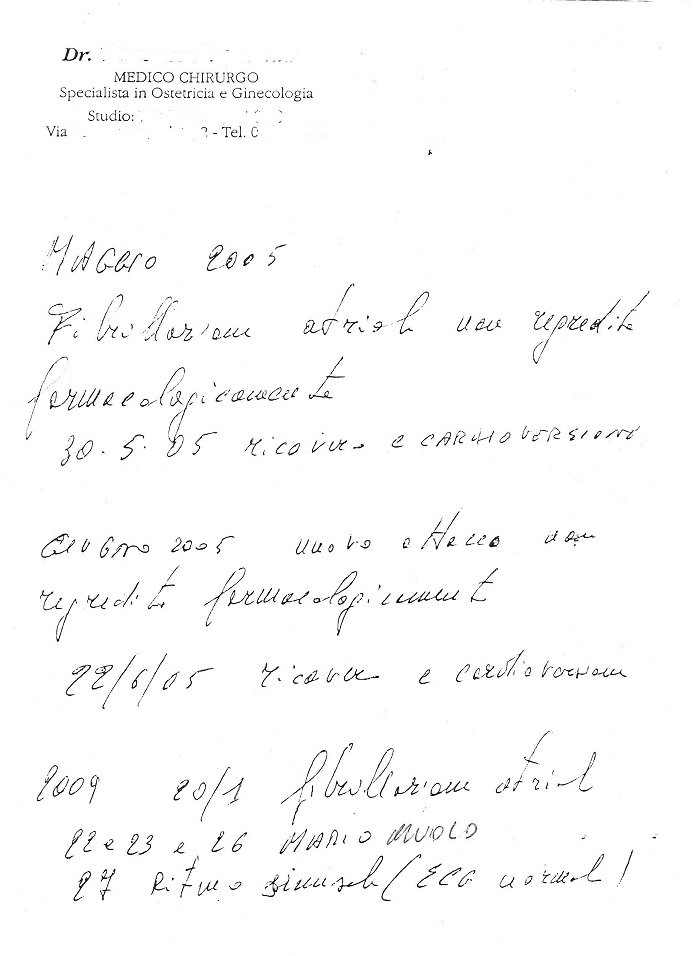 Dr.
MEDICO CHIRURGO
Specialista in Ostetricia e Ginecologia
Studio:
Via - Tel. 0
MAGGIO 2005
Fibrillazione atriale non regredita
farmacologicamente
30.5.05 ricovero e CARDIOVERSIONE
GIUGNO 2005 nuovo attacco non
regredita farmacologicamente
22/6/05 ricovero e cardioversione
2009 20/1 fibrillazione atriale
22 e 23 e 26 MARIO
27 Ritmo sinusale (ECG normale)